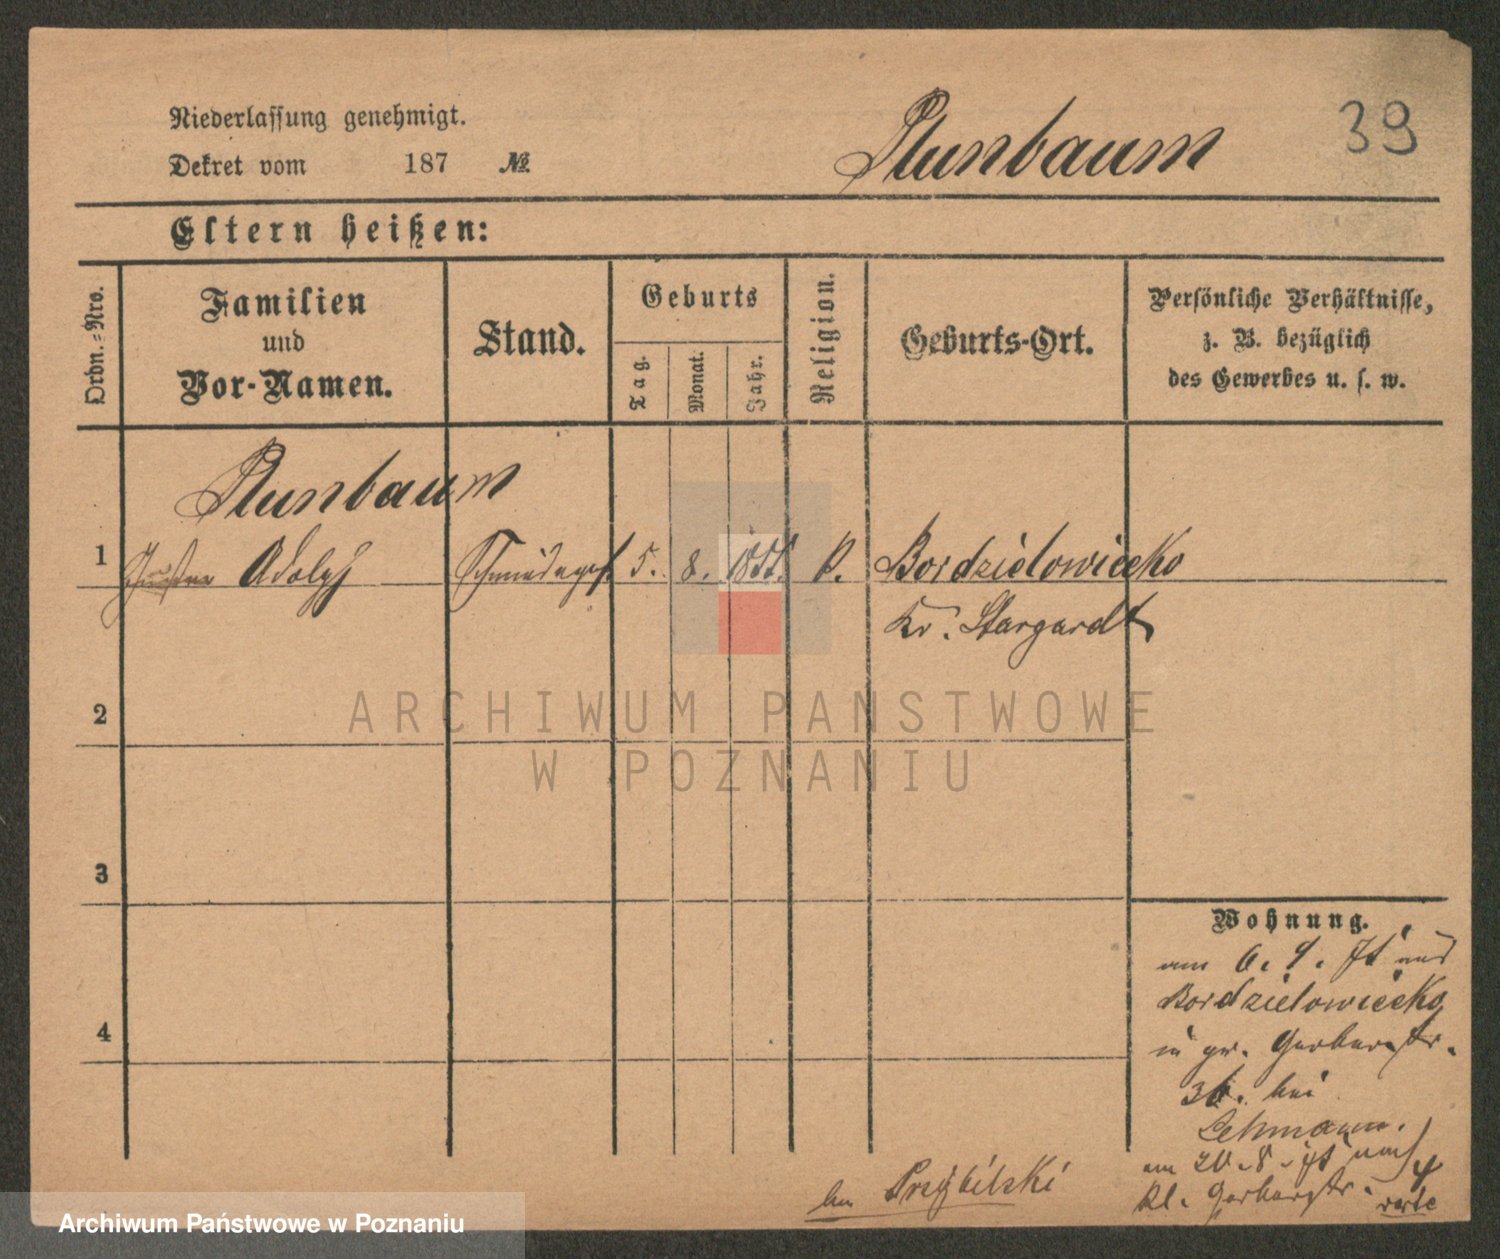 Niederlassung genehmigt.
Dekret vom 187 №
Nunbaum
39
Eltern heißen:
Ordn.-Nro.
Familien
und
Vor-Namen.
Stand.
Geburts
Tag.
Monat.
Jahr.
Religion.
Geburts-Ort.
Persönliche Verhältnisse,
z. B. bezüglich
des Gewerbes u. s. w.
Nunbaum
1 Adolph Schmiedeges. 5. 8. 1855.
Kr. Stargardt
ARCHIWUM PAŃSTWOWE
W POZNANIU
2
3
4
Wohnung.
am 6. 9. aus
in gr. Gerberstr.
36. bei
Lehmann.
am 20. 8. nach
kl. Gerberstr. 4
bei Przybilski
verte
Archiwum Państwowe w Poznaniu